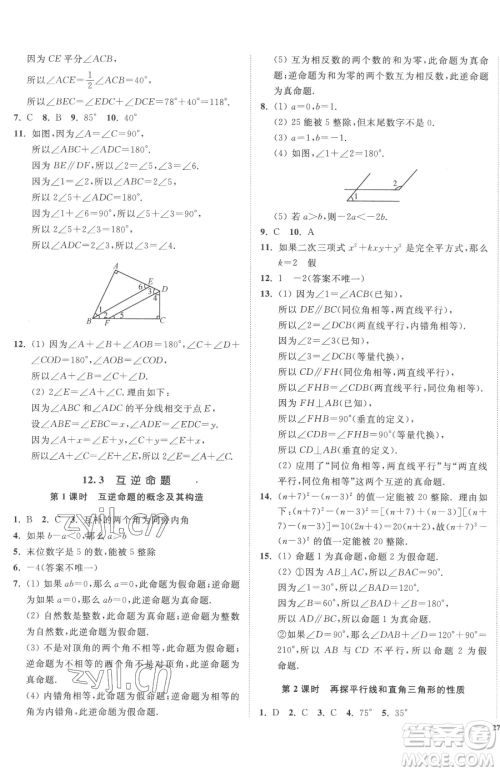 因为 CE 平分∠ACB,
所以∠ACE=1/2∠ACB=40°.
所以∠BEC=∠EDC+∠DCE=78°+40°=118°.
7. C 8. B 9. 85° 10. 40°
11. 如图,因为∠A=∠C=90°,
所以∠ABC+∠ADC=180°.
因为 BE∥DF,所以∠3=∠4.
所以∠2=∠5,∠3+∠5=90°.
所以∠2+∠4=90°.
所以 2∠4+2∠5=180°.
所以 2∠5+∠ADC=180°.
因为∠1+∠6=90°,所以∠1+∠4=90°.
所以∠1=∠2.
所以∠ADF=∠CDF.
A
6 E
3 D
4
1
2 5
B F C
12. (1) 因为∠A+∠B+∠AOB=180°,∠C+∠D+∠COD=180°,∠AOB=∠COD,
所以∠A+∠B=∠C+∠D.
(2) 2∠E=∠A+∠C. 理由如下:
因为∠ABC 和∠ADC 的平分线交于点 E,
设∠ABE=∠EBC=x,∠ADE=∠EDC=y,
所以∠A+x=∠E+y,∠C+y=∠E+x.
所以∠A+∠C=∠E+∠E.
所以 2∠E=∠A+∠C.
12.3 互逆命题
第 1 课时 互逆命题的概念及其构造
1. B 2. C 3. 互补的两个角为同旁内角
4. 如果 a-b>0,那么 a>b
5. 末位数字是 5 的数能被 5 整除
6. -4(答案不唯一)
7. (1) 如果 ab=0,那么 a=0,此命题为假命题.逆命题:如果 a=0,那么 ab=0,此命题为真命题.
(2) 自然数是整数,此命题为真命题.逆命题:整数是自然数,此命题为假命题.
(3) 不是对顶角的两个角不相等,此命题为假命题.逆命题:不相等的两个角不是对顶角,此命题为真命题.
(4) 内错角相等,此命题为假命题.逆命题:相等的角是内错角,此命题为假命题.
(5) 互为相反数的两个数的和为 0,此命题为真命题.逆命题:和为 0 的两个数互为相反数,此命题为真命题.
8. (1) a=0,b=1.
(2) 25 能被 5 整除,但末位数字不是 0.
(3) a=1,b=-1.
(4) 如图,∠1+∠2=180°.
2
1
(5) 若 a>b,则-2a<-2b.
9. C 10. A
11. 如果二次三项式 x²+kxy+y² 是完全平方式,那么 k=2 假
12. 1 -2(答案不唯一)
13. (1) 因为∠1=∠ACB(已知),
所以 DE∥BC(同位角相等,两直线平行).
所以∠2=∠DCB(两直线平行,内错角相等).
因为∠2=∠3(已知),
所以∠3=∠DCB(等量代换).
所以 CD∥FH(同位角相等,两直线平行).
所以∠FHB=∠CDB(两直线平行,同位角相等).
因为∠CDB=90°(已知),
所以∠FHB=90°(等量代换).
(2) 应用了“同位角相等,两直线平行”与“两直线平行,同位角相等”这两个互逆的真命题.
14. (1) (n+7)²-(n-3)² 的值一定能被 20 整除.理由:(n+7)²-(n-3)²=(n+7+n-3)(n+7-n+3)=20(n+2),
所以(n+7)²-(n-3)² 的值一定能被 20 整除.
(2) (n+7)²-(n-3)²
15. (1) 命题 1 为真命题,命题 2 为假命题.
(2) ①因为 AB⊥AC(已知),
所以∠BAC=90°.
因为∠1=30°(已知),
所以∠BAD=∠BAC+∠1=120°.
因为∠B=60°,所以∠BAD+∠B=180°.
所以 AD∥BC.故命题 1 为真命题.
②如果∠D=90°,那么∠DAF+∠D=90°+150°=240°≠180°,此时 AF 不平行于 CD.故命题 2 为假命题.
第 2 课时 再探平行线和直角三角形的性质
1. D 2. C 3. C 4. 75° 5. 35°
27
zyjl.cn
zyjl.cn
作业精灵
答案圈
MXQE.COM